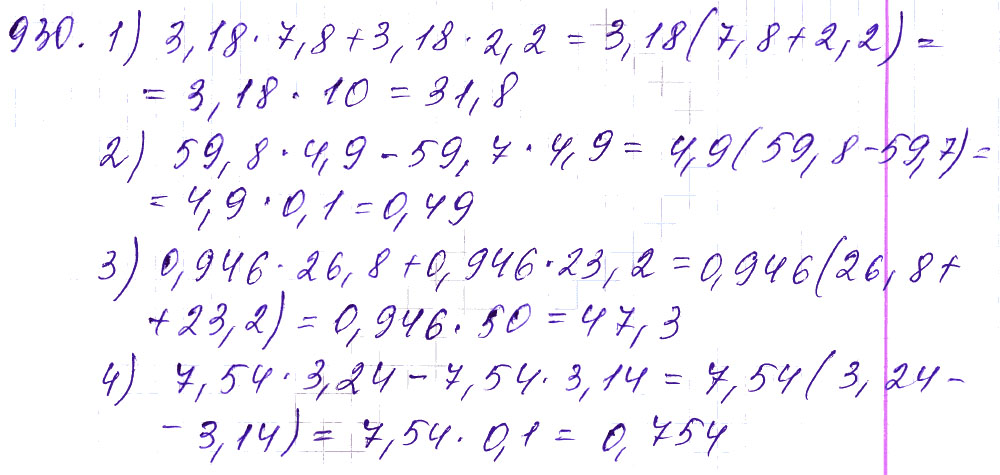 930. 1) 3,18·7,8+3,18·2,2 = 3,18(7,8+2,2) =
= 3,18·10 = 31,8
2) 59,8·4,9-59,7·4,9 = 4,9(59,8-59,7) =
= 4,9·0,1 = 0,49
3) 0,946·26,8+0,946·23,2 = 0,946(26,8+
+23,2) = 0,946·50 = 47,3
4) 7,54·3,24-7,54·3,14 = 7,54(3,24-
-3,14) = 7,54·0,1 = 0,754